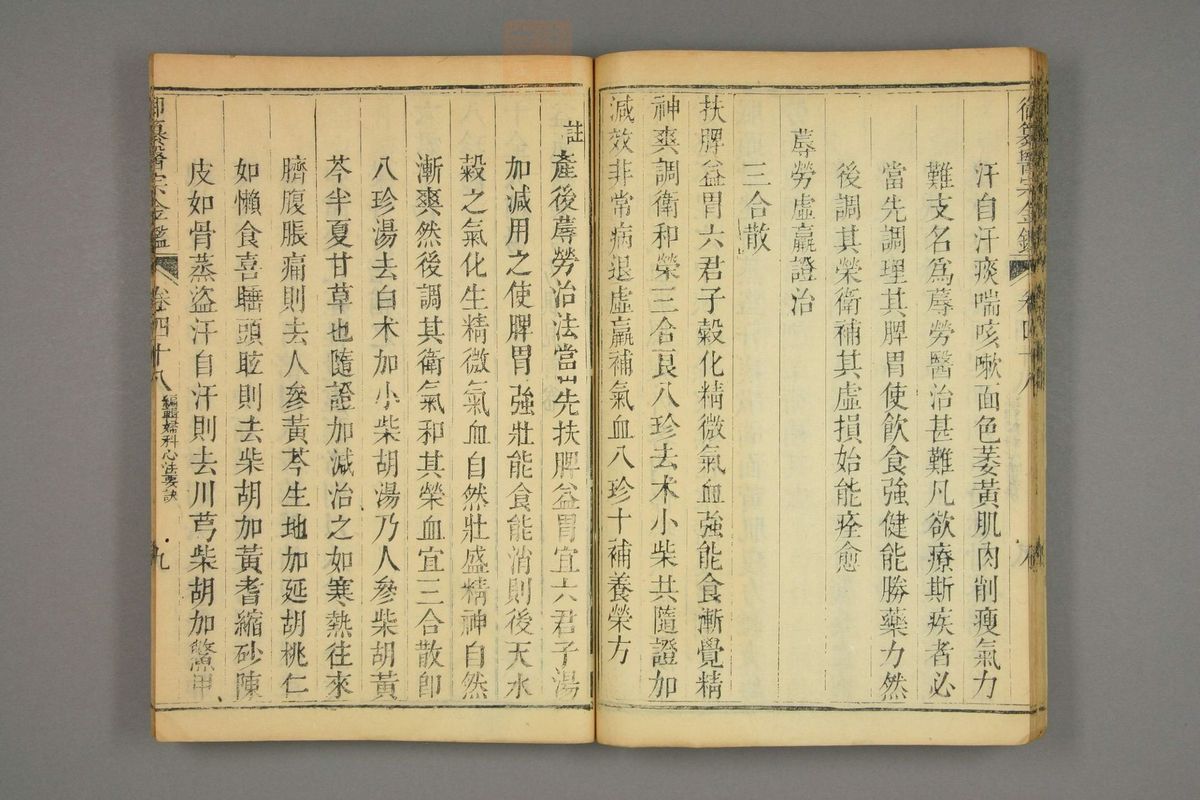 御纂醫宗金鑑 卷四十八 八
汗自汗痰喘咳嗽面色萎黃肌肉削瘦氣力
難支名爲蓐勞醫治甚難凡欲療斯疾者必
當先調理其脾胃使飲食強健能勝藥力然
後調其榮衛補其虛損始能痊愈
蓐勞虛羸證治
三合散
扶脾益胃六君子穀化精微氣血強能食漸覺精
神爽調衛和榮三合良八珍去术小柴共隨證加
減效非常病退虛羸補氣血八珍十補養榮方
註產後蓐勞治法當先扶脾益胃宜六君子湯
加減用之使脾胃強壯能食能消則後天水
穀之氣化生精微氣血自然壯盛精神自然
漸爽然後調其衛氣和其榮血宜三合散卽
八珍湯去白术加小柴胡湯乃人參柴胡黃
芩半夏甘草也隨證加減治之如寒熱往來
臍腹脹痛則去人參黃芩生地加延胡桃仁
如懶食喜睡頭眩則去柴胡加黃耆縮砂陳
皮如骨蒸盜汗自汗則去川芎柴胡加鱉甲
御纂醫宗金鑑 卷四十八 編輯婦科心法要訣 九